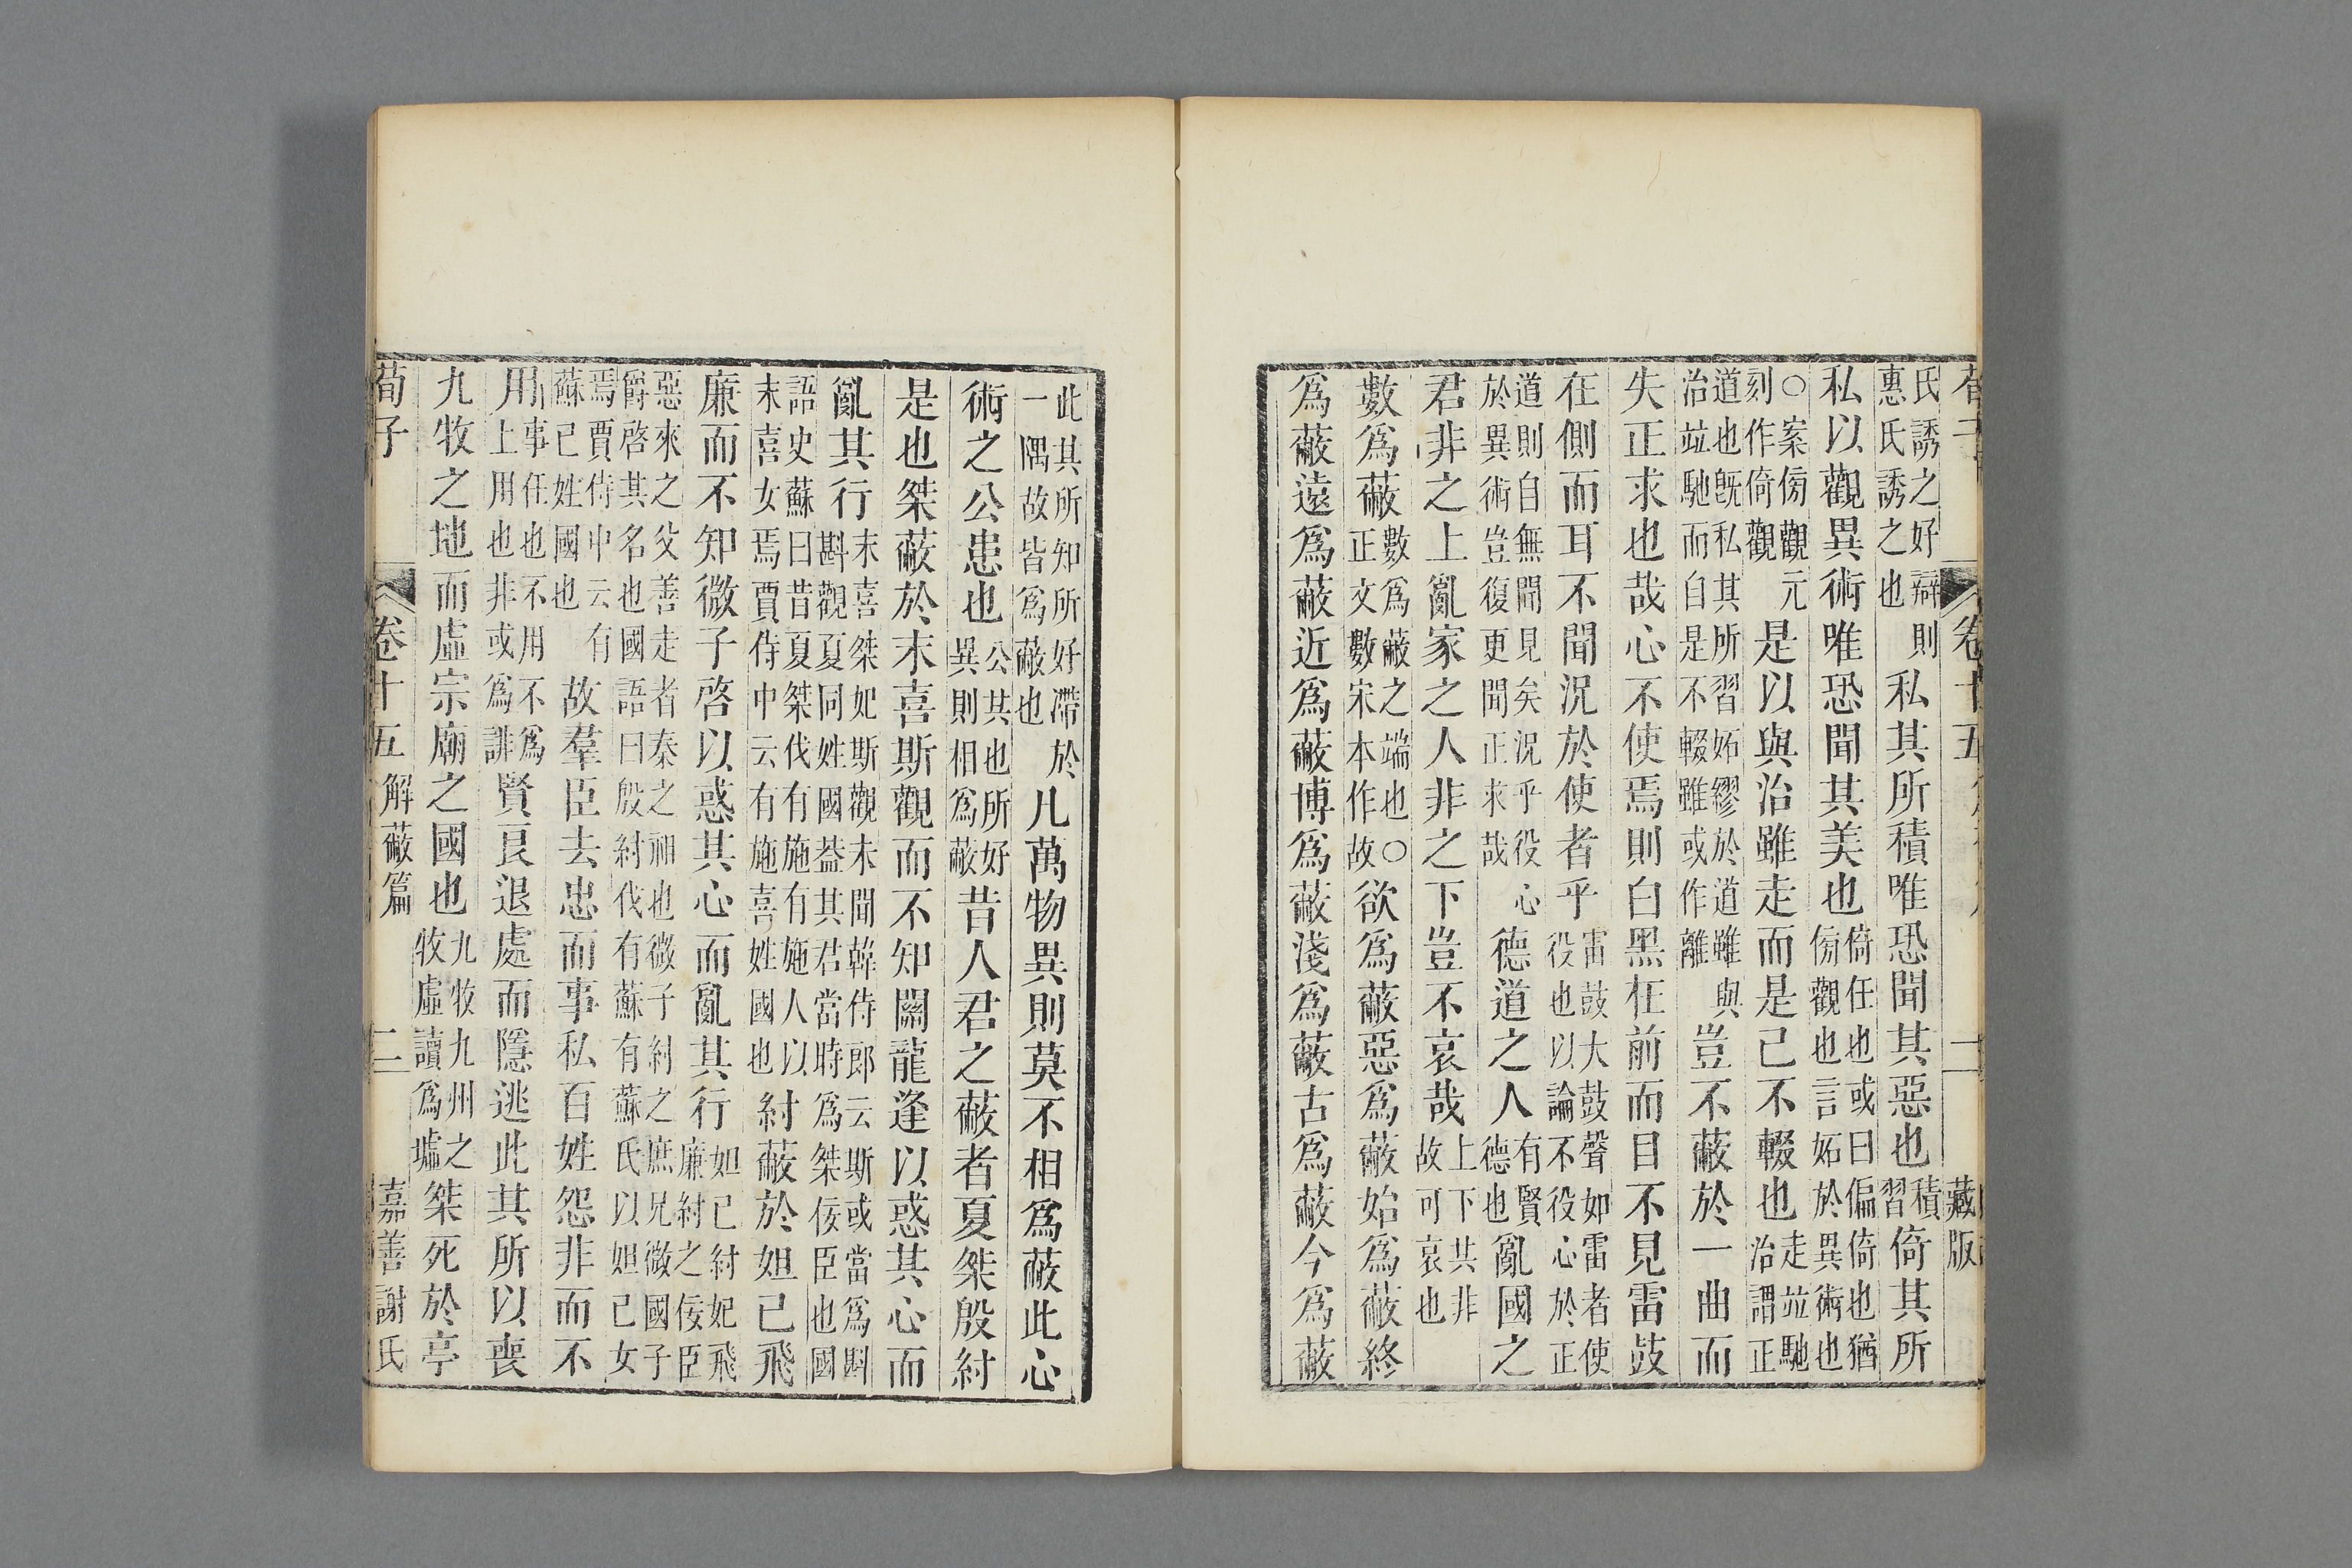 荀子 卷十五 一 藏版
氏誘之好辯則
惠氏誘之也
私其所積唯恐聞其惡也
積
習
倚其所
私以觀異術唯恐聞其美也
倚任也或曰偏倚也猶
傍觀也言妬於異術也
○案傍觀元
刻作倚觀
是以與治雖走而是己不輟也
走竝馳
治謂正
道也既私其所習妬繆於道雖與
治竝馳而自是不輟雖或作離
豈不蔽於一曲而
失正求也哉心不使焉則白黑在前而目不見雷鼓
在側而耳不聞況於使者乎
雷鼓大鼓聲如雷者使
役也以論不役心於正
道則自無聞見矣況乎役心
於異術豈復更聞正求哉
德道之人
有賢
德也
亂國之
君非之上亂家之人非之下豈不哀哉
上下共非
故可哀也
數爲蔽
數爲蔽之端也○
正文數宋本作故
欲爲蔽惡爲蔽始爲蔽終
爲蔽遠爲蔽近爲蔽博爲蔽淺爲蔽古爲蔽今爲蔽
此其所知所好滯於
一隅故皆爲蔽也
凡萬物異則莫不相爲蔽此心
術之公患也
公共也所好
異則相爲蔽
昔人君之蔽者夏桀殷紂
是也桀蔽於末喜斯觀而不知關龍逢以惑其心而
亂其行
末喜桀妃斯觀未聞韓侍郎云斯或當爲斟
斟觀夏同姓國蓋其君當時爲桀佞臣也國
語史蘇曰昔夏桀伐有施有施人以
末喜女焉賈侍中云有施喜姓國也
紂蔽於妲己飛
廉而不知微子啓以惑其心而亂其行
妲己紂妃飛
廉紂之佞臣
惡來之父善走者秦之祖也微子紂之庶兄微國子
爵啓其名也國語曰殷紂伐有蘇有蘇氏以妲己女
焉賈侍中云有
蘇己姓國也
故羣臣去忠而事私百姓怨非而不
用
事任也不用不爲
上用也非或爲誹
賢良退處而隱逃此其所以喪
九牧之地而虛宗廟之國也
九牧九州之
牧虛讀爲墟
桀死於亭
荀子 卷十五 解蔽篇 二 嘉善謝氏